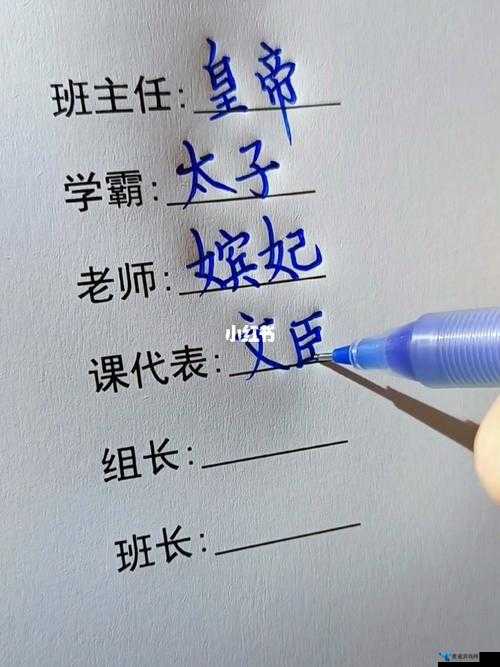 班主任:皇帝
学霸:太子
老师:嫔妃
小红书
课代表:文臣
组长:
班长: